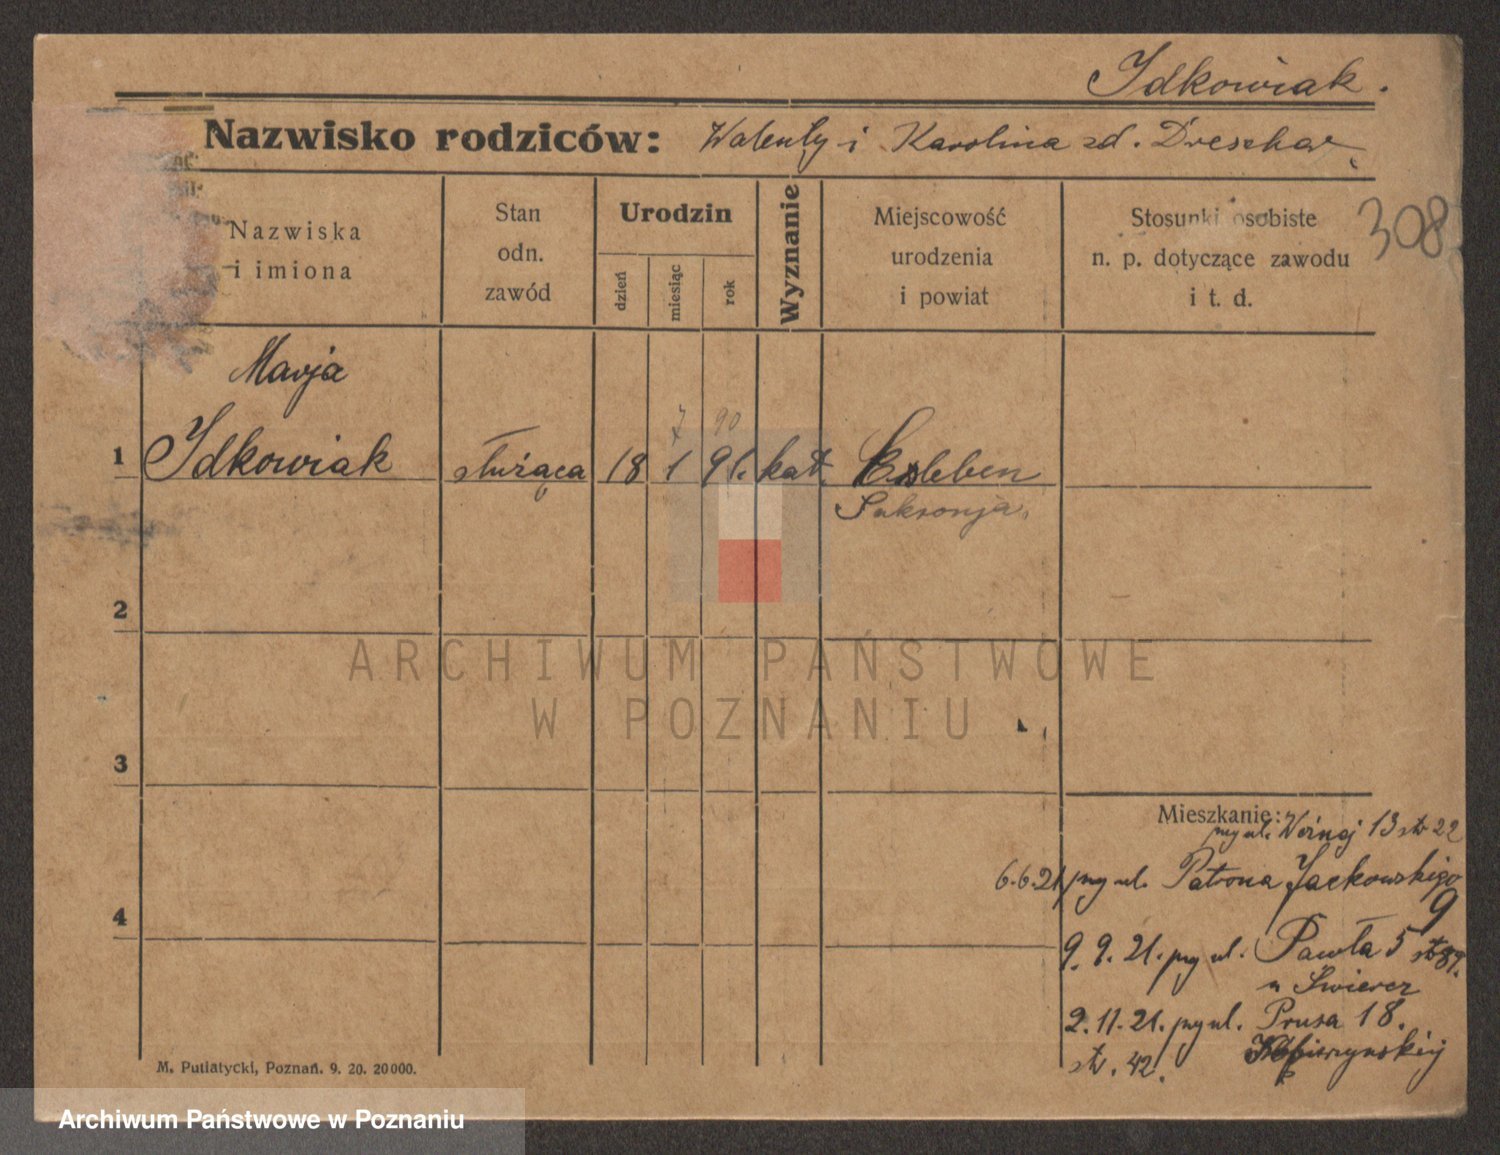 Idkowiak.
Nazwisko rodziców: Walenty i Karolina zd. Dreschar
308
Nazwiska
i imiona
Stan
odn.
zawód
Urodzin
dzień
miesiąc
rok
Wyznanie
Miejscowość
urodzenia
i powiat
Stosunki osobiste
n. p. dotyczące zawodu
i t. d.
Marja
7 90
1 Idkowiak służąca 18 1 91. kat. Eisleben
Saksonja.
2
3
4
ARCHIWUM PAŃSTWOWE
W POZNANIU
Mieszkanie:
przy ul. Woźnej 13 str 22
6.6.21 przy ul. Patrona Jackowskiego
9
9. 9. 21. przy ul. Pawła 5 str 89.
u Świercz
2. 11. 21. przy ul. Prusa 18.
str. 42.
M. Putiatycki, Poznań. 9. 20. 20000.
Archiwum Państwowe w Poznaniu